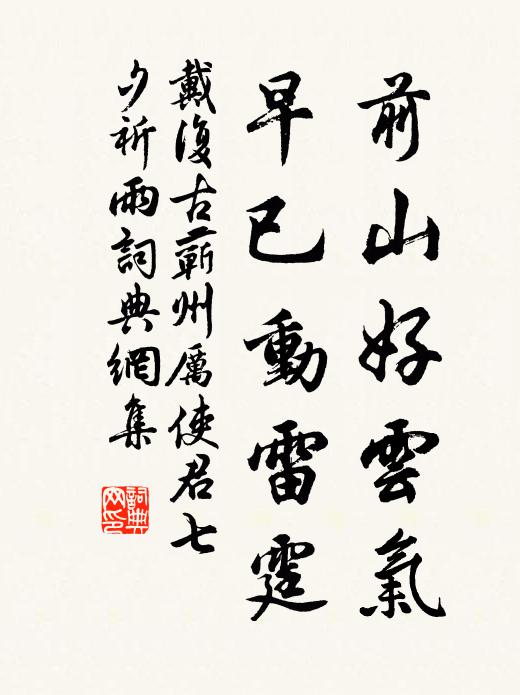 前山好雲氣
早已動雷霆
戴復古蘄州厲使君七
夕祈雨詞典網集
詞典
网印